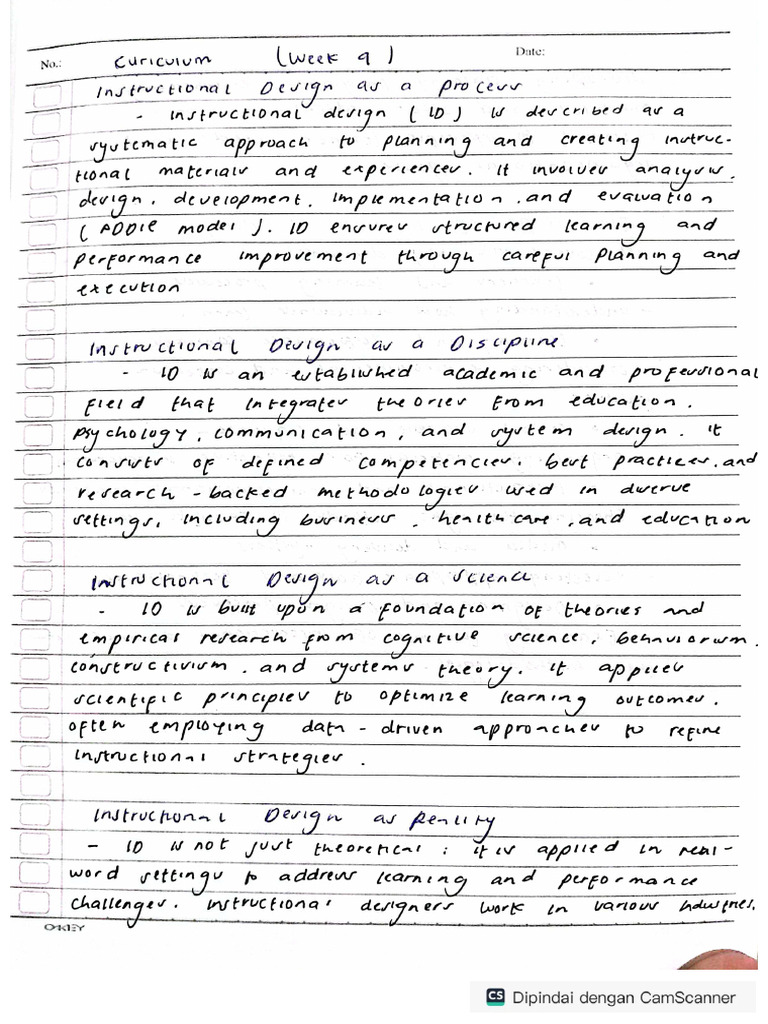 No.: Curiculum (Week 9) Date:
Instructional Design as a process
- instructional design (ID) is described as a
systematic approach to planning and creating instruc-
tional materials and experiences. it involves analysis,
design, development, implementation, and evaluation
(ADDIE model). ID ensures structured learning and
performance improvement through careful planning and
execution
Instructional Design as a Discipline
- ID is an established academic and professional
field that integrates theories from education,
psychology, communication, and system design. it
consists of defined competencies, best practices, and
research-backed methodologies used in diverse
settings, including business, healthcare, and education
Instructional Design as a science
- ID is built upon a foundation of theories and
empirical research from cognitive science, behaviorism,
constructivism, and systems theory. it applies
scientific principles to optimize learning outcomes,
often employing data-driven approaches to refine
instructional strategies.
Instructional Design as Reality
- ID is not just theoretical; it is applied in real-
word settings to address learning and performance
challenges. instructional designers work in various industries,
OKEY
CS Dipindai dengan CamScanner